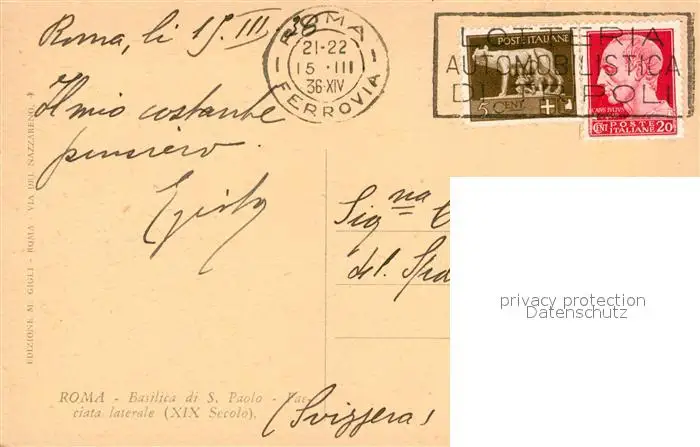 Roma, li 15. III. 38
ROMA
21-22
15 · III
36·XIV
FERROVIA
LOTTERIA
AUTOMOBILISTICA
DI
POLI
POSTE ITALIANE
5 CENT
CENT POSTE ITALIANE 20
Il mio costante
pensiero.
Sig.na
del.
(Svizzera)
privacy protection
Datenschutz
EDIZIONE M. GIGLI - ROMA - VIA DEL NAZZARENO,
ROMA - Basilica di S. Paolo - Fac-
ciata laterale (XIX Secolo).